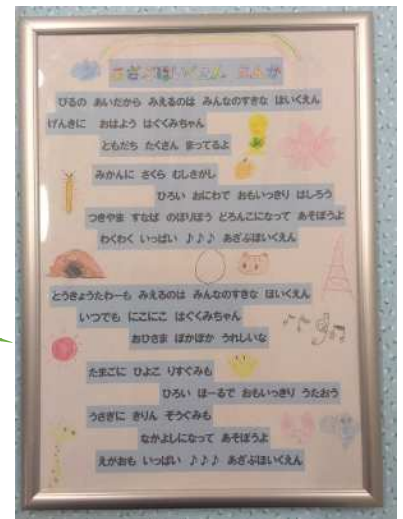 あざぶほいくえん えんか
びるの あいだから みえるのは みんなのすきな ほいくえん
げんきに おはよう はぐくみちゃん
ともだち たくさん まってるよ
みかんに さくら むしさがし
ひろい おにわで おもいっきり はしろう
つきやま すなば のぼりぼう どろんこになって あそぼうよ
わくわく いっぱい ♪♪♪ あざぶほいくえん
とうきょうたわーも みえるのは みんなのすきな ほいくえん
いつでも にこにこ はぐくみちゃん
おひさま ぽかぽか うれしいな
たまごに ひよこ りすぐみも
ひろい ほーるで おもいっきり うたおう
うさぎに きりん ぞうぐみも
なかよしになって あそぼうよ
えがおも いっぱい ♪♪♪ あざぶほいくえん